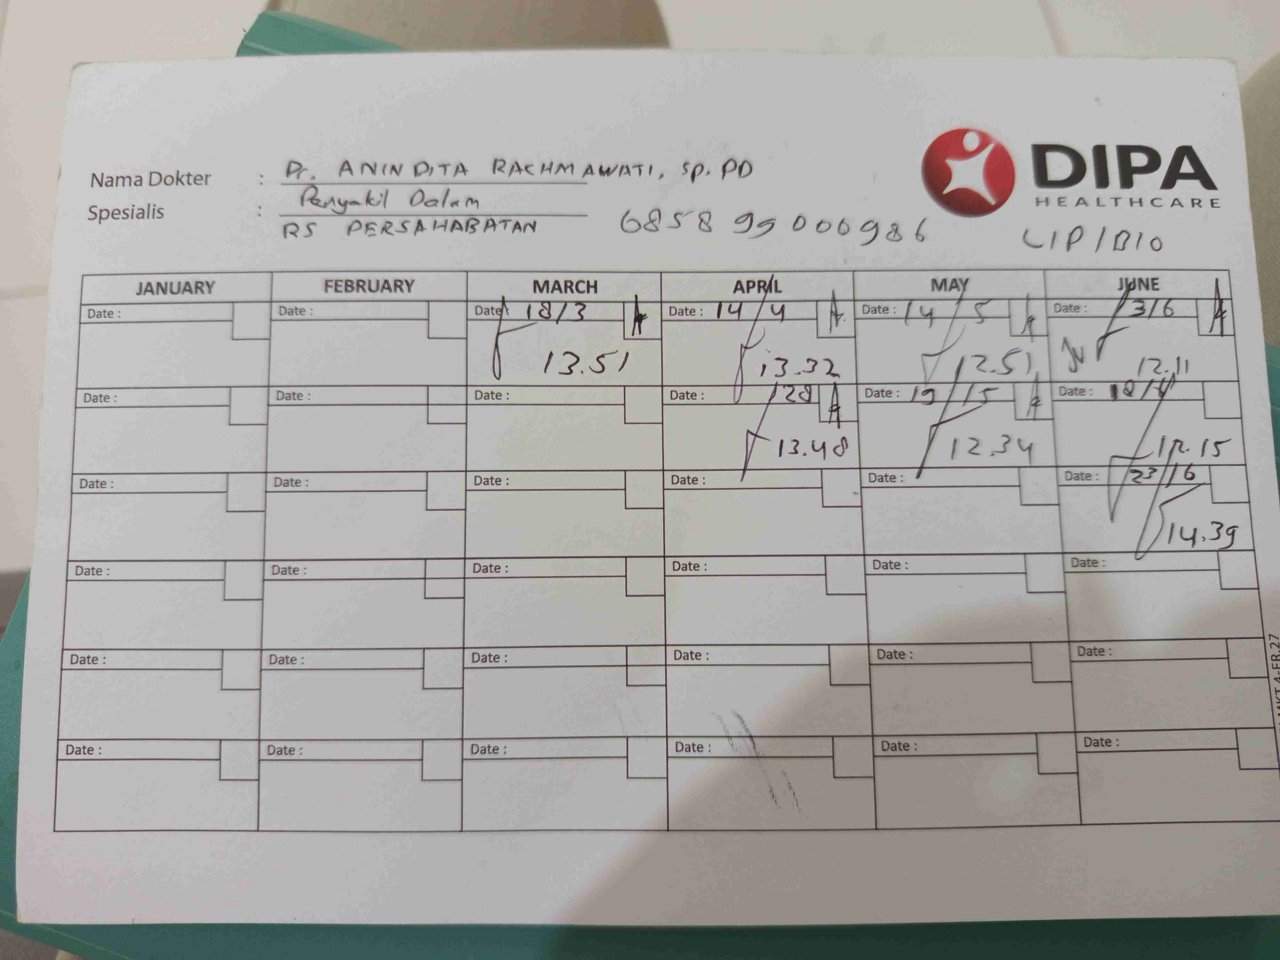 DIPA
HEALTHCARE
Nama Dokter : Dr. ANINDITA RACHMAWATI, Sp. PD
Spesialis : Penyakil Dalam
RS PERSAHABATAN 6858 99 000986 LIP/BIO
JANUARY FEBRUARY MARCH APRIL MAY JUNE
Date : Date : Date 18/3 Date : 14/4 Date : 14/5 Date : 3/6
13.51 13.32 12.51 12.11
Date : Date : Date : Date : 28 Date : 19/5 Date : 18/6
13.48 12.34 12.15
Date : Date : Date : Date : Date : Date : 23/6
14.39
Date : Date : Date : Date : Date : Date :
Date : Date : Date : Date : Date : Date :
Date : Date : Date : Date : Date : Date :